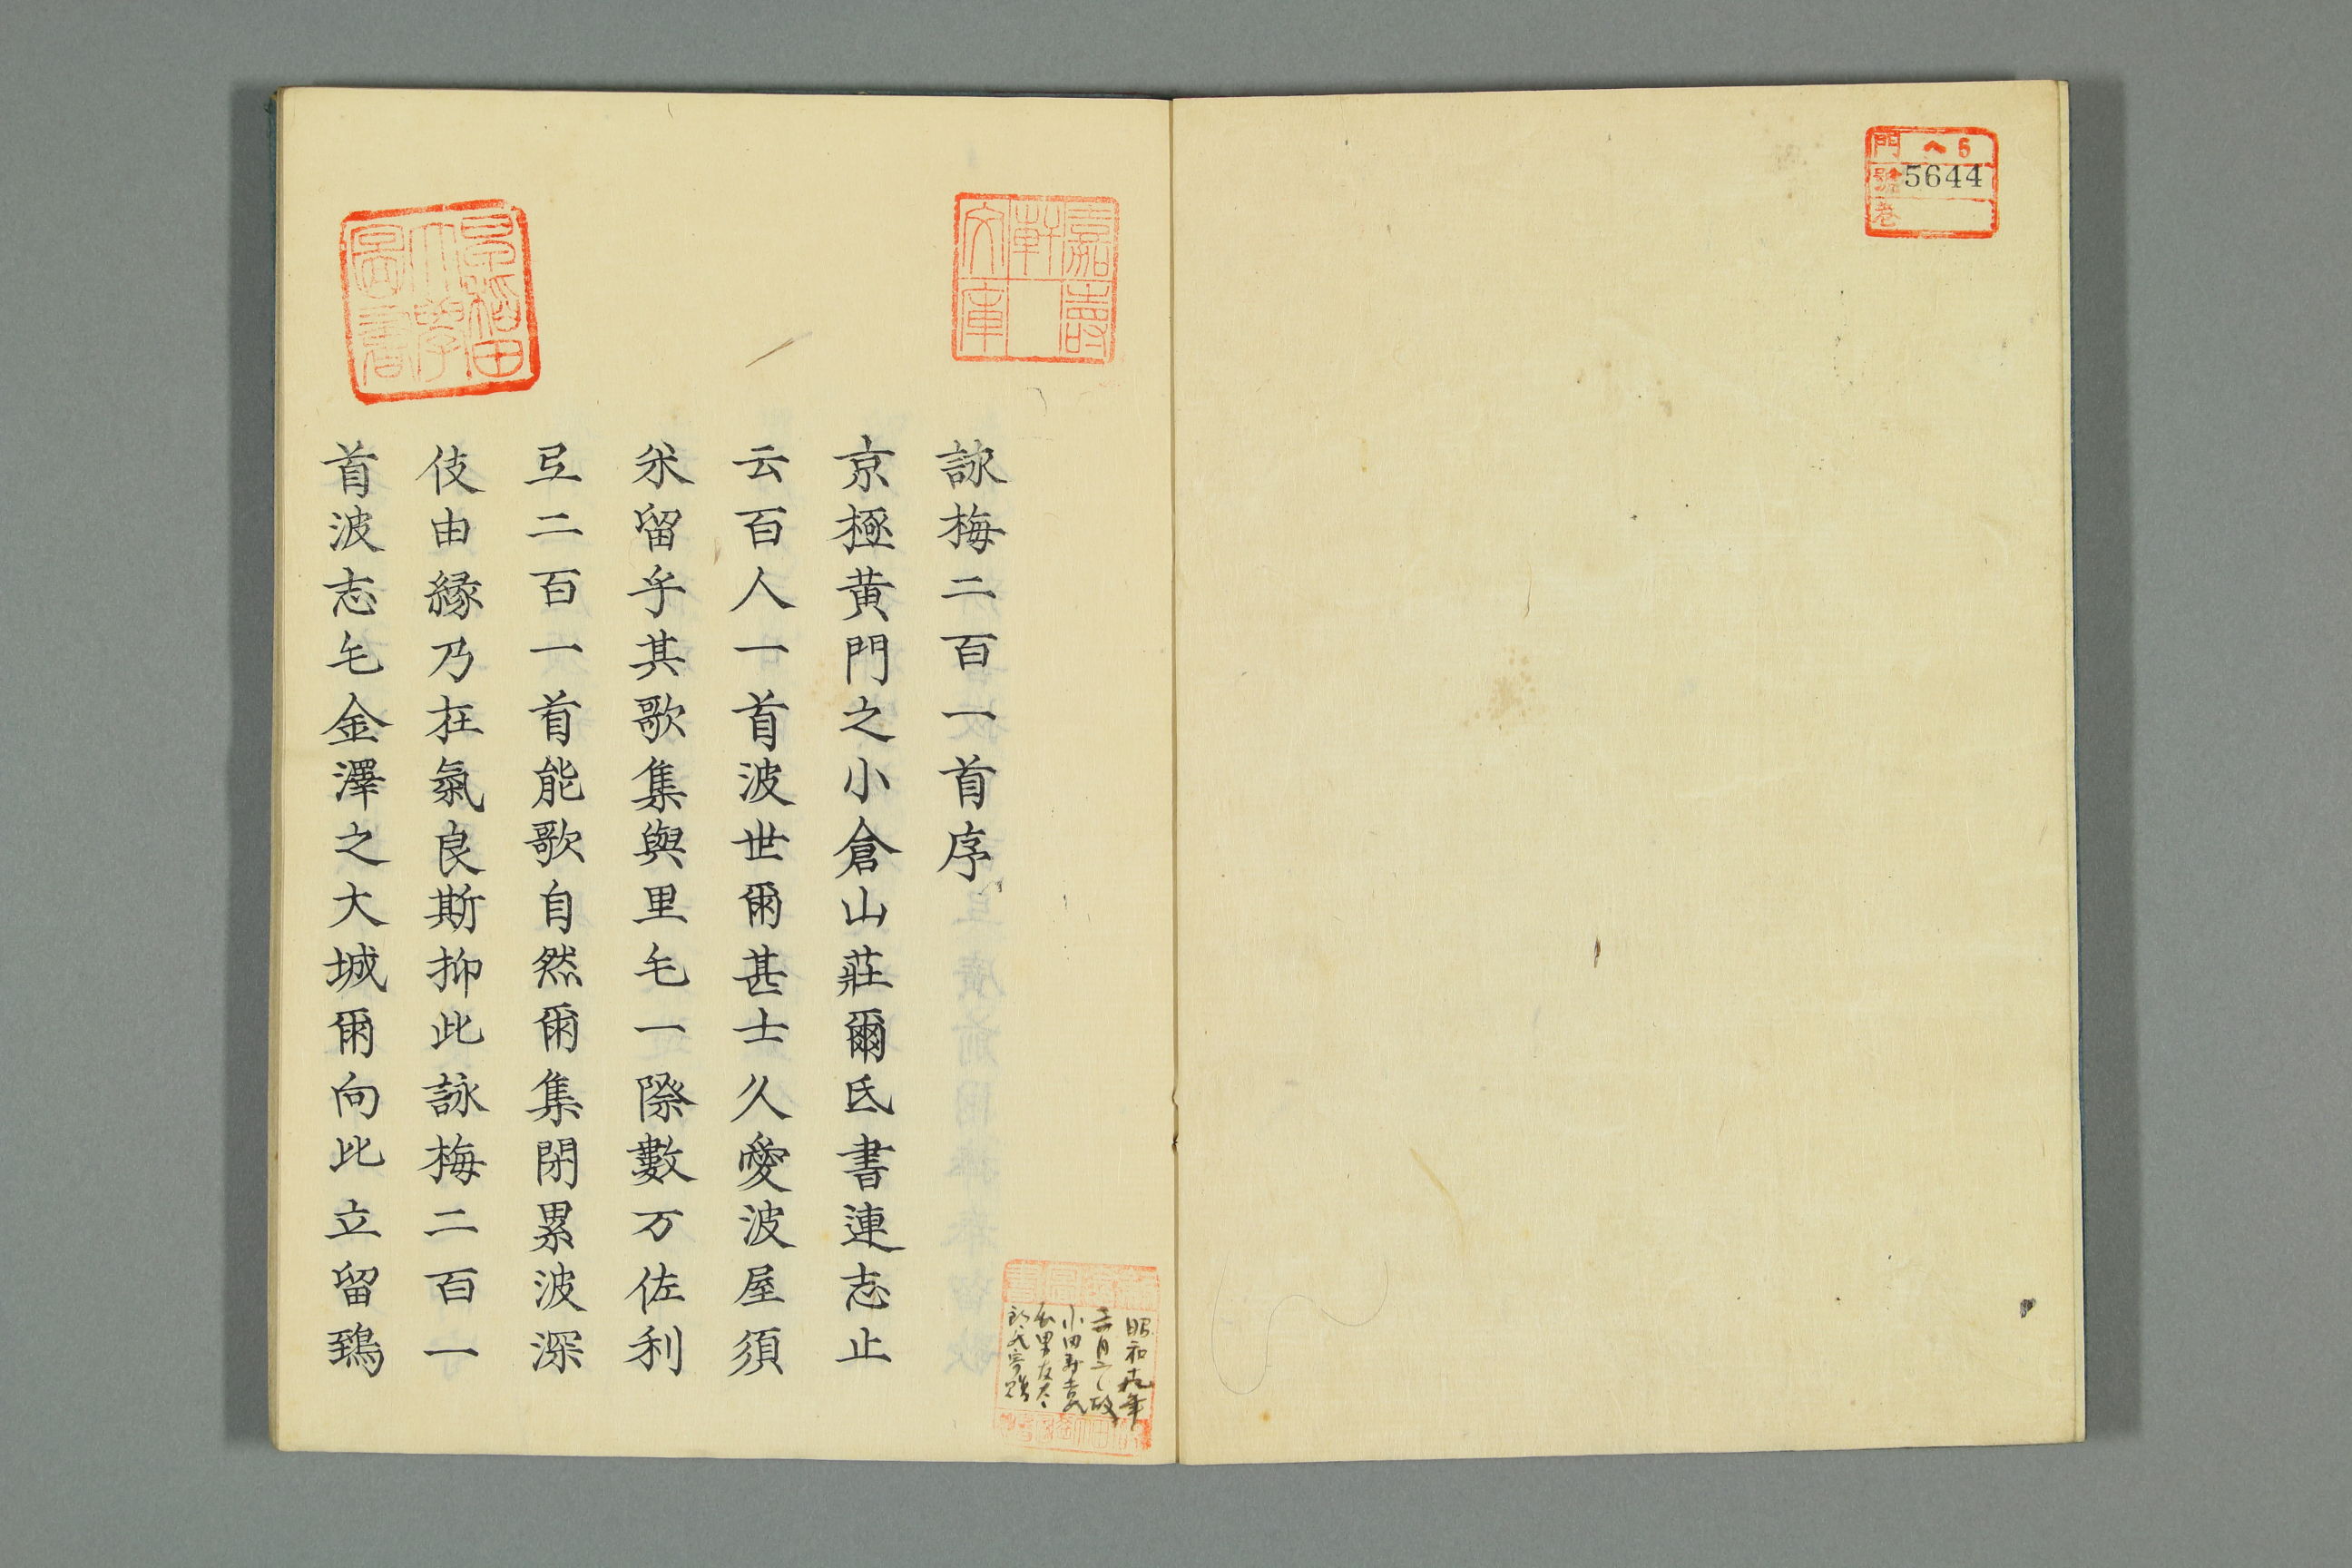 門 ヘ5
號 5644
卷
嘉壽
軒
文庫
詠梅二百一首序
京極黄門之小倉山莊爾氐書連志止
云百人一首波世爾甚士久愛波屋須
米留乎其歌集與里毛一際數万佐利
弖二百一首能歌自然爾集閇累波深
伎由緣乃在氣良斯抑此詠梅二百一
首波志毛金澤之大城爾向比立留鵄
早稲田
大學
圖書
昭和十九年
小田
郎氏寄贈